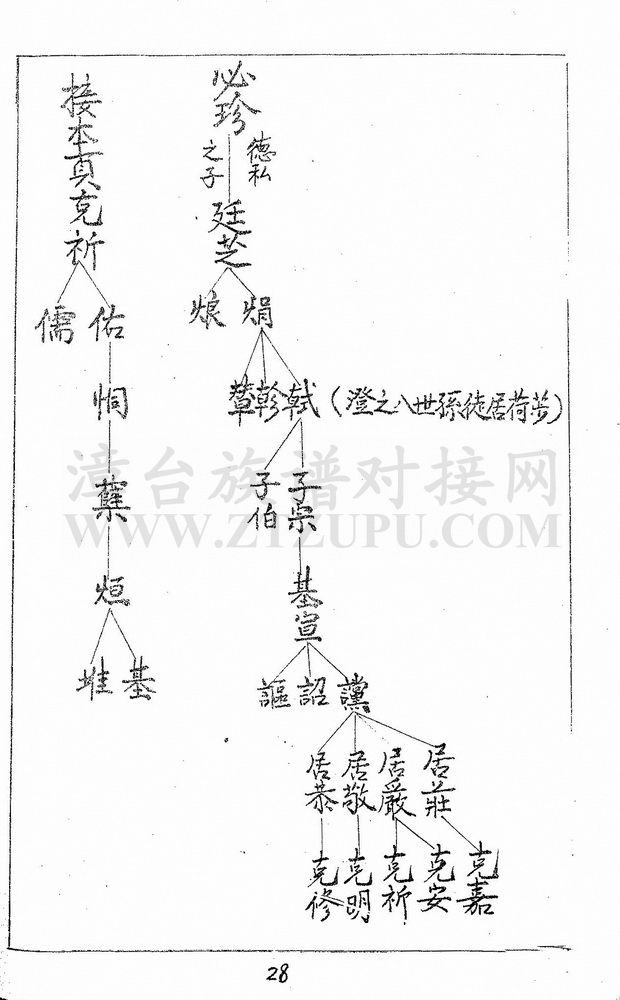 必珍
德私
之子
廷芝
娟
烺
軾
軫
輦
(澄之八世孫徒居荷步)
子宗
子伯
基宣
讜
詔
謳
居莊
居嚴
居敬
居恭
克嘉
克安
克祈
克明
克修
接本頁克祈
佑
儒
恫
烜
基
堆
漳台族谱对接网
WWW.ZTZUPU.COM
28